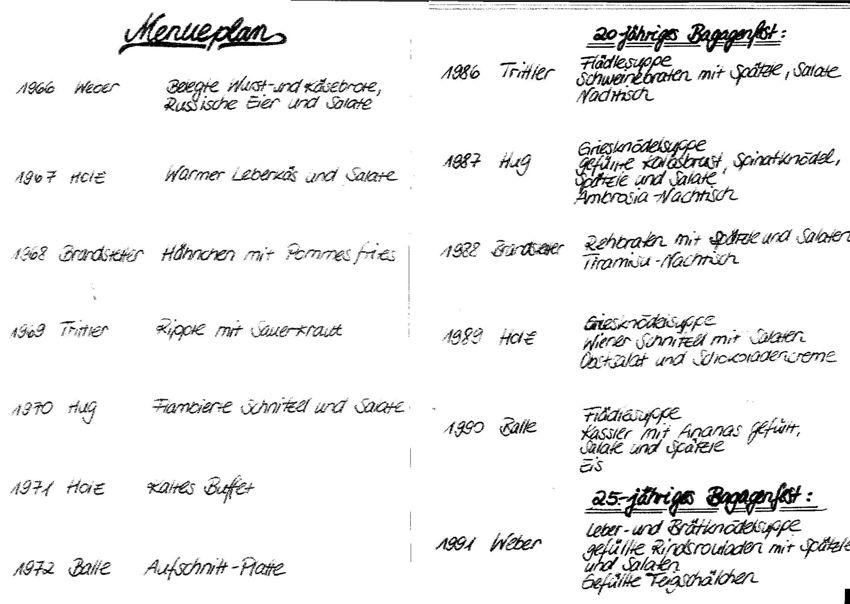 Menueplan
1966 Weber Belegte Wurst-und Käsebrote,
Russische Eier und Salate,
1967 Holz Warmer Leberkäs und Salate
1968 Brandstetter Hähnchen mit Pommes fries
1969 Trittler Ripple mit Sauerkraut
1970 Hug Flambierte Schnitzel und Salate
1971 Holz Kaltes Buffet
1972 Balle Aufschnitt-Platte
20-jähriges Bagagenfest:
1986 Trittler Flädlesuppe
Schweinebraten mit Spätzle, Salate
Nachtisch
1987 Hug Griesknödelsuppe
gefüllte Kalbsbrust, Spinatknödel,
Spätzle und Salate,
Ambrosia-Nachtisch
1988 Brandstetter Rehbraten mit Spätzle und Salaten
Tiramisu-Nachtisch
1989 Holz Griesknödelsuppe
Wiener Schnitzel mit Salaten
Obstsalat und Schokoladencreme
1990 Balle Flädlesuppe
Kassler mit Ananas gefüllt,
Salate und Spätzle
Eis
25-jähriges Bagagenfest:
1991 Weber Leber-und Brätknödelsuppe
gefüllte Rindsrouladen mit Spätzle
und Salaten
Gefüllte Teigschälchen